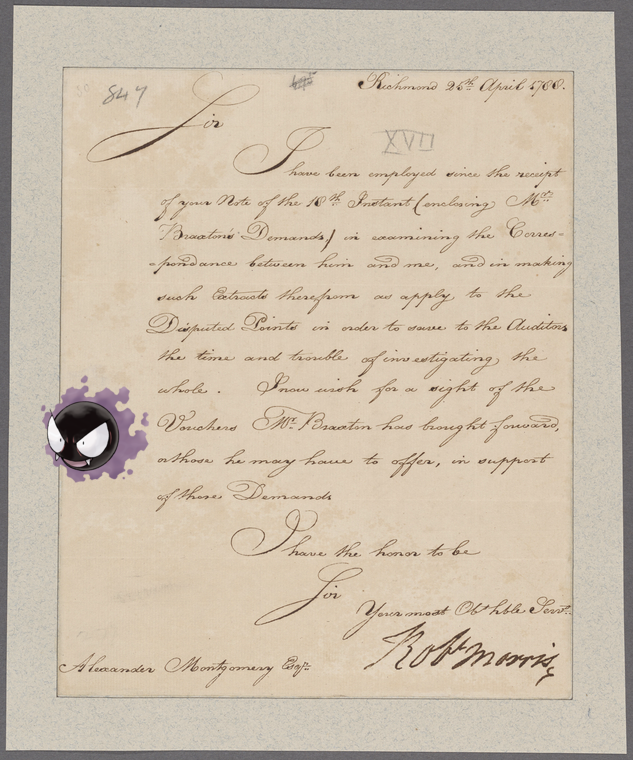 847
Richmond 25th April 1788.
Sir
XVII
I have been employed since the receipt
of your Note of the 18th Instant (enclosing Mr.
Braxton's Demands) in examining the Corres-
-pondance between him and me, and in making
such Extracts therefrom as apply to the
Disputed Points in order to save to the Auditors
the time and trouble of investigating the
whole. I now wish for a sight of the
Vouchers Mr. Braxton has brought forward,
or those he may have to offer, in support
of these Demands
I have the honor to be
Sir
Your most Obt hble Servt.
Robt Morris
Alexander Montgomery Esqr.